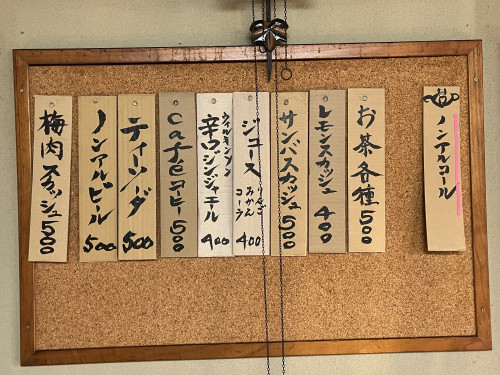 ノンアルコール
お茶各種 500
レモンスカッシュ 400
サンバスカッシュ 500
ジュース りんご みかん コーラ 400
ウィルキンソン
辛口ジンジャエール 400
Cafeコーヒー 500
ティーソーダ 500
ノンアルビール 500
梅肉スカッシュ 500